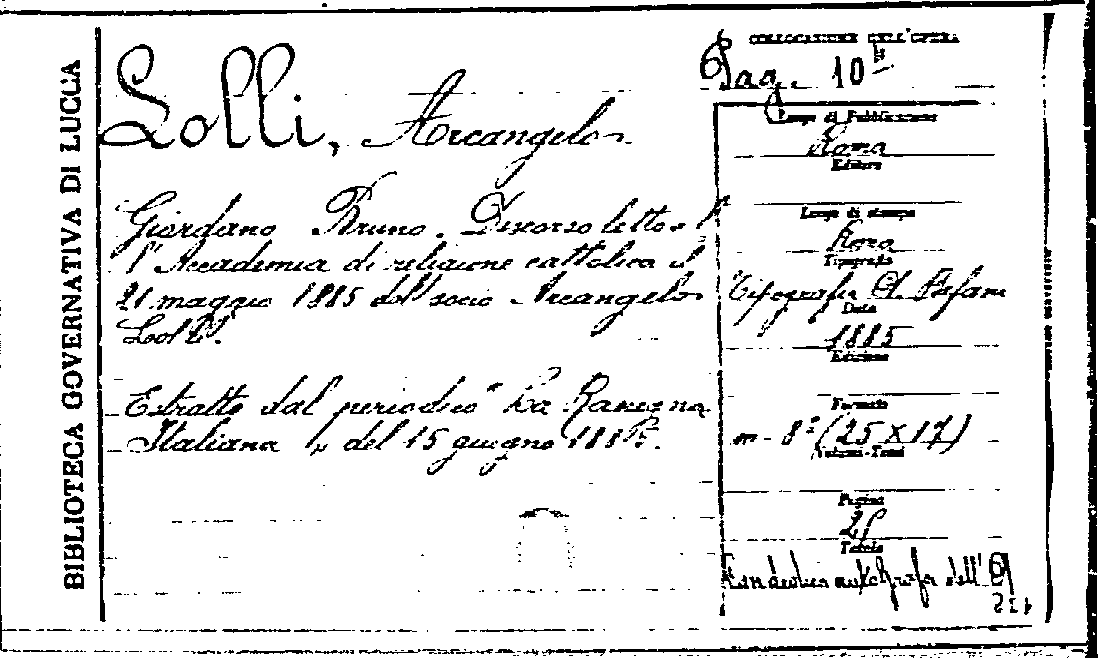 BIBLIOTECA GOVERNATIVA DI LUCCA
Lolli, Arcangelo
Giordano Bruno. Discorso letto al
l'Accademia di religione cattolica il
21 maggio 1885 dal socio Arcangelo
Lolli.
Estratto dal periodico "La Rassegna
Italiana" del 15 giugno 1885.
COLLOCAZIONE DELL'OPERA
Pag. 10
Luogo di Pubblicazione
Roma
Editore
Luogo di stampa
Roma
Tipografia
Tipografia A. Befani
Data
1885
Edizione
Formato
in-8° (25 x 17)
Volumi-Tomi
Pagine
Tavole
Con dedica autografa dell'A